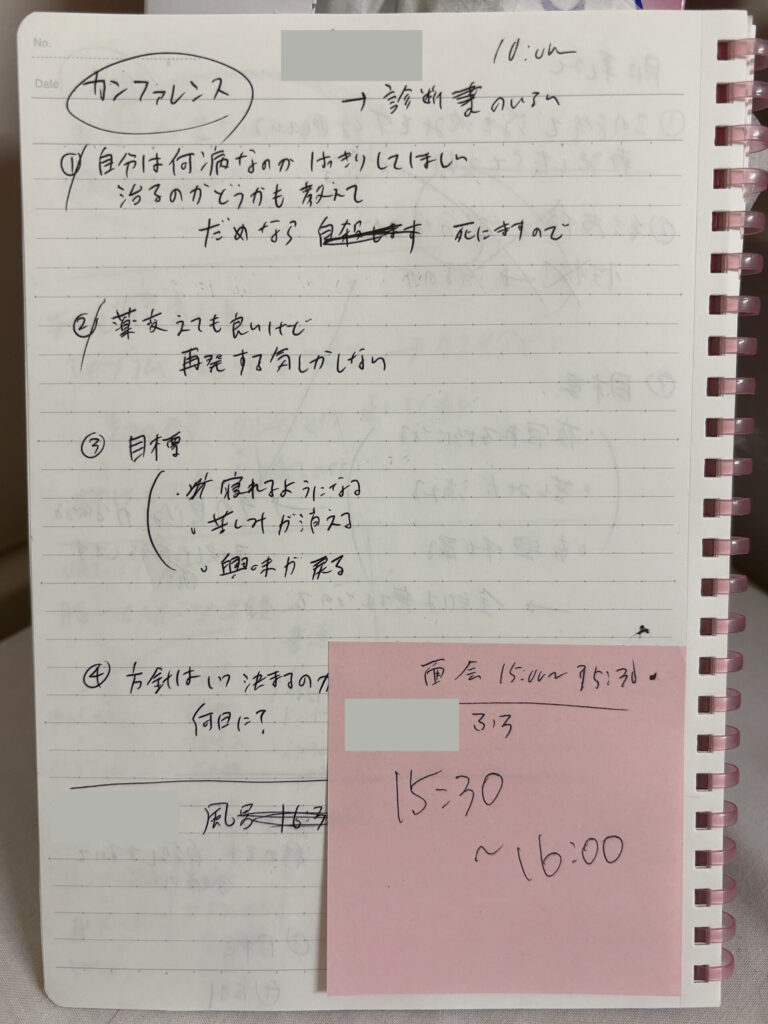 No.
Date
10:00~
カンファレンス
→ 診断書のいらい
① 自分は何病なのか はきりしてほしい
治るのかどうかも 教えて
だめなら 自殺します 死にますので
② 薬変えても良いけど
再発する気しかしない
③ 目標
・寝れるようになる
・苦しみが消える
・興味が戻る
④ 方針はいつ決まるのか
何日に?
風呂 16:3
面会 15:00~ 15:30.
3:3
15:30
~16:00